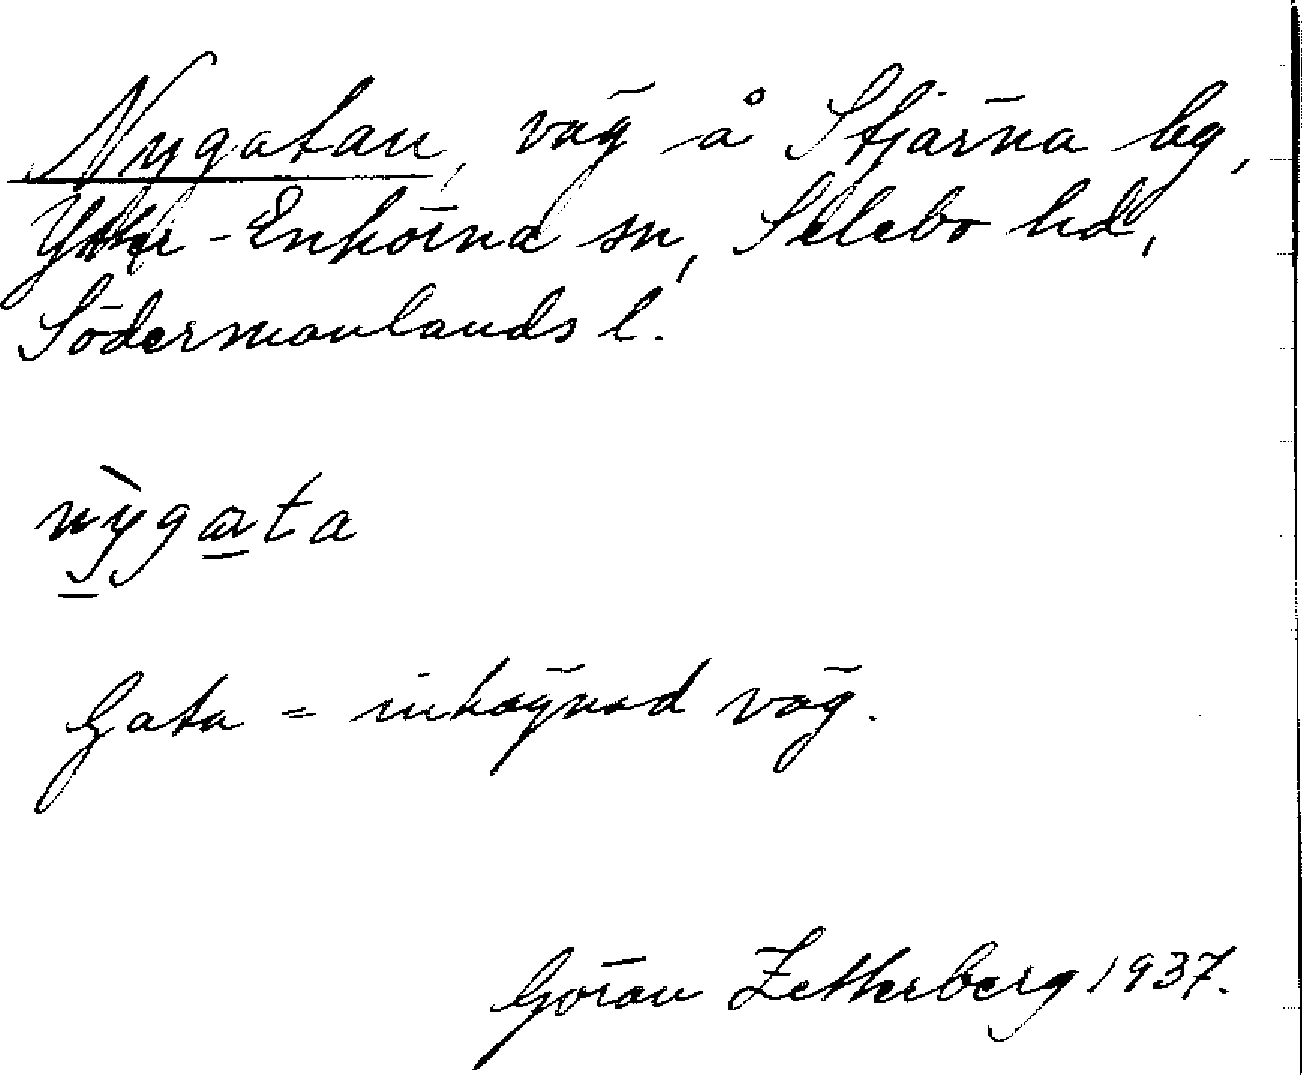 Nygatan, väg å Stjärna by,
Ytter-Enhörna sn, Selebo hd,
Södermanlands l.
nỳgata
Gata = inhägnad väg.
Göran Zetterberg 1937.